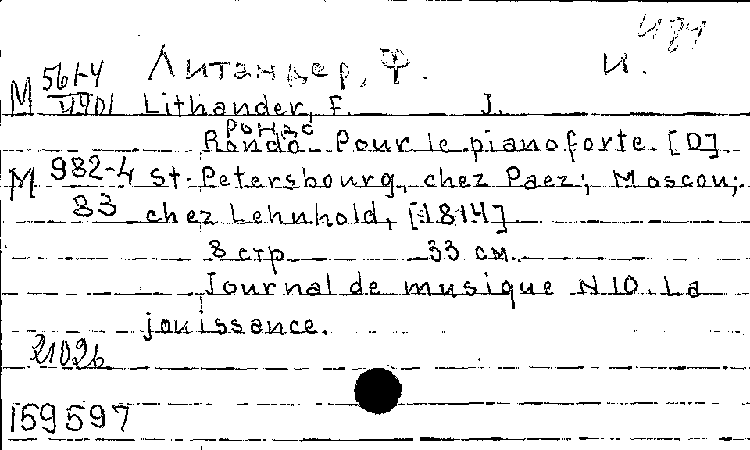 484
Литандер, Ф. И.
М 561-4
4901
Lithander, F. J.
Рондо
Rondo. Pour le pianoforte. [D]
М 982-4
83
St. Petersbourg, chez Paez; Moscou;
chez Lehnhold, [1814]
8 стр. 33 см.
Journal de musique N 10. La
jouissance.
21026
159597